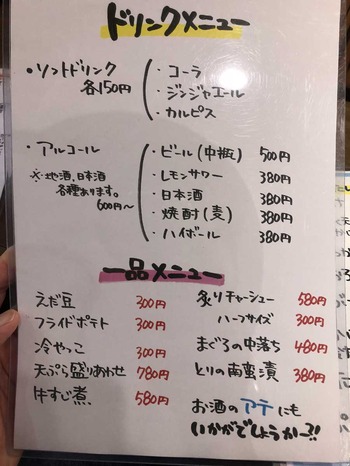 ドリンクメニュー
・ソフトドリンク
各150円
・コーラ
・ジンジャエール
・カルピス
・アルコール
※地酒、日本酒
各種あります。
600円〜
・ビール(中瓶) 500円
・レモンサワー 380円
・日本酒 380円
・焼酎(麦) 380円
・ハイボール 380円
一品メニュー
えだ豆 300円
フライドポテト 300円
冷やっこ 300円
天ぷら盛りあわせ 780円
牛すじ煮 580円
炙りチャーシュー 580円
ハーフサイズ 300円
まぐろの中落ち 480円
とりの南蛮漬 380円
お酒のアテにも
いかがでしょうかー?!